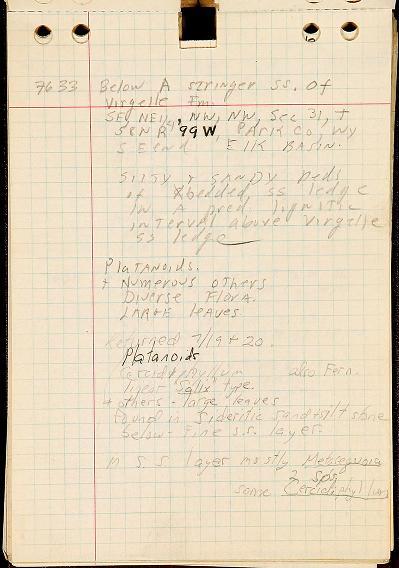 7633 Below A stringer ss. of
Virgelle Fm.
SE, NE1/4, NW, NW, Sec 31, T
58N R 99W, PARK Co, Wy
S End Elk Basin.
Silty & sandy beds
of Xbedded, ss ledge
in A pred. lignitic
interval above Virgelle
ss ledge
Platanoids.
+ Numerous others
Diverse Flora.
LARGE leaves
Returned 7/19 + 20.
Platanoids
Cercidiphyllum also Fern.
linear "Salix" type.
+ others - large leaves
Found in Sideritic sand & silt stone
below - Fine s.s. layer.
In S.S. layer mostly Metasequoia
2 sps.
some Cercidiphyllum